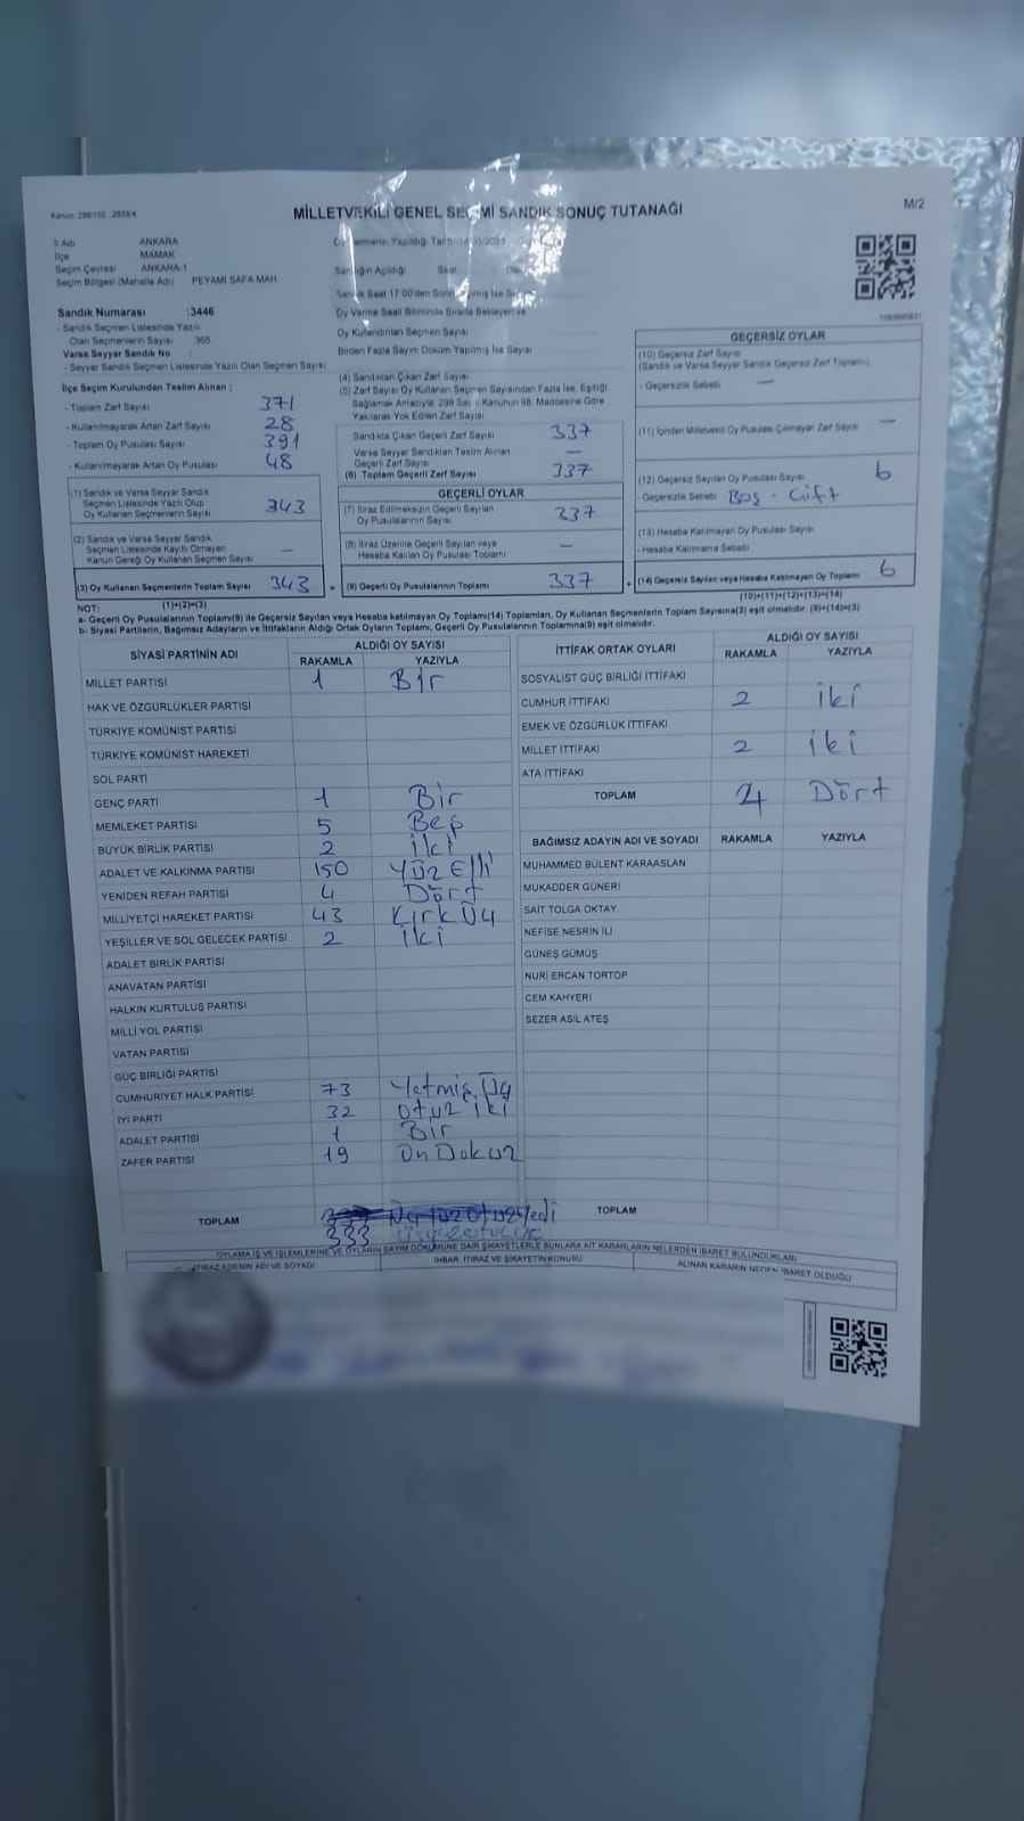 MİLLETVEKİLİ GENEL SEÇİMİ SANDIK SONUÇ TUTANAĞI
M/2
İl Adı ANKARA
İlçe MAMAK
Seçim Çevresi ANKARA-1
Seçim Bölgesi (Mahalle Adı) PEYAMİ SAFA MAH.
Sandık Numarası :3446
- Sandık Seçmen Listesinde Yazılı
Olan Seçmenlerin Sayısı 365
Varsa Seyyar Sandık No
- Seyyar Sandık Seçmen Listesinde Yazılı Olan Seçmen Sayısı
İlçe Seçim Kurulundan Teslim Alınan :
- Toplam Zarf Sayısı 371
- Kullanılmayarak Artan Zarf Sayısı 28
- Toplam Oy Pusulası Sayısı 391
- Kullanılmayarak Artan Oy Pusulası 48
(1) Sandık ve Varsa Seyyar Sandık
Seçmen Listesinde Yazılı Olup
Oy Kullanan Seçmenlerin Sayısı 343
(2) Sandık ve Varsa Seyyar Sandık
Seçmen Listesinde Kayıtlı Olmayan
Kanun Gereği Oy Kullanan Seçmen Sayısı —
(3) Oy Kullanan Seçmenlerin Toplam Sayısı 343
(1)+(2)=(3)
Oy Verme Saati Bitiminde Sırada Bekleyen ve
Oy Kullandırılan Seçmen Sayısı
Birden Fazla Sayım Döküm Yapılmış İse Sayısı
(4) Sandıktan Çıkan Zarf Sayısı
(5) Zarf Sayısı Oy Kullanan Seçmen Sayısından Fazla İse, Eşitliği
Sağlamak Amacıyla, 298 Sayılı Kanunun 98. Maddesine Göre
Yakılarak Yok Edilen Zarf Sayısı
Sandıkta Çıkan Geçerli Zarf Sayısı 337
Varsa Seyyar Sandıktan Teslim Alınan
Geçerli Zarf Sayısı —
(6) Toplam Geçerli Zarf Sayısı 337
GEÇERLİ OYLAR
(7) İtiraz Edilmeksizin Geçerli Sayılan
Oy Pusulalarının Sayısı 337
(8) İtiraz Üzerine Geçerli Sayılan veya
Hesaba Katılan Oy Pusulası Toplamı —
(9) Geçerli Oy Pusulalarının Toplamı 337
GEÇERSİZ OYLAR
(10) Geçersiz Zarf Sayısı
(Sandık ve Varsa Seyyar Sandık Geçersiz Zarf Toplamı)
- Geçersizlik Sebebi —
(11) İçinden Milletvekili Oy Pusulası Çıkmayan Zarf Sayısı —
(12) Geçersiz Sayılan Oy Pusulası Sayısı 6
- Geçersizlik Sebebi Boş - Çift
(13) Hesaba Katılmayan Oy Pusulası Sayısı
- Hesaba Katılmama Sebebi
(14) Geçersiz Sayılan veya Hesaba Katılmayan Oy Toplamı 6
(10)+(11)+(12)+(13)=(14)
NOT:
a- Geçerli Oy Pusulalarının Toplamı(9) ile Geçersiz Sayılan veya Hesaba katılmayan Oy Toplamı(14) Toplamları, Oy Kullanan Seçmenlerin Toplam Sayısına(3) eşit olmalıdır. (9)+(14)=(3)
b- Siyasi Partilerin, Bağımsız Adayların ve İttifakların Aldığı Ortak Oyların Toplamı, Geçerli Oy Pusulalarının Toplamına(9) eşit olmalıdır.
SİYASİ PARTİNİN ADI ALDIĞI OY SAYISI
RAKAMLA YAZIYLA
MİLLET PARTİSİ 1 Bir
HAK VE ÖZGÜRLÜKLER PARTİSİ
TÜRKİYE KOMÜNİST PARTİSİ
TÜRKİYE KOMÜNİST HAREKETİ
SOL PARTİ
GENÇ PARTİ 1 Bir
MEMLEKET PARTİSİ 5 Beş
BÜYÜK BİRLİK PARTİSİ 2 İki
ADALET VE KALKINMA PARTİSİ 150 Yüz Elli
YENİDEN REFAH PARTİSİ 4 Dört
MİLLİYETÇİ HAREKET PARTİSİ 43 Kırk Üç
YEŞİLLER VE SOL GELECEK PARTİSİ 2 İki
ADALET BİRLİK PARTİSİ
ANAVATAN PARTİSİ
HALKIN KURTULUŞ PARTİSİ
MİLLİ YOL PARTİSİ
VATAN PARTİSİ
GÜÇ BİRLİĞİ PARTİSİ
CUMHURİYET HALK PARTİSİ 73 Yetmiş Üç
İYİ PARTİ 32 Otuz İki
ADALET PARTİSİ 1 Bir
ZAFER PARTİSİ 19 On Dokuz
TOPLAM
333
İTTİFAK ORTAK OYLARI ALDIĞI OY SAYISI
RAKAMLA YAZIYLA
SOSYALİST GÜÇ BİRLİĞİ İTTİFAKI
CUMHUR İTTİFAKI 2 İki
EMEK VE ÖZGÜRLÜK İTTİFAKI
MİLLET İTTİFAKI 2 İki
ATA İTTİFAKI
TOPLAM 4 Dört
BAĞIMSIZ ADAYIN ADI VE SOYADI RAKAMLA YAZIYLA
MUHAMMED BÜLENT KARAASLAN
MUKADDER GÜNERİ
SAİT TOLGA OKTAY
NEFİSE NESRİN İLİ
GÜNEŞ GÜMÜŞ
NURİ ERCAN TORTOP
CEM KAHYERİ
SEZER ASİL ATEŞ
TOPLAM
OYLAMA İŞ VE İŞLEMLERİNE VE OYLARIN SAYIM DÖKÜMÜNE DAİR ŞİKAYETLERLE BUNLARA AİT KARARLARIN NELERDEN İBARET BULUNDUKLARI
İTİRAZ EDENİN ADI VE SOYADI İHBAR, İTİRAZ VE ŞİKAYETİN KONUSU ALINAN KARARIN NEDEN İBARET OLDUĞU